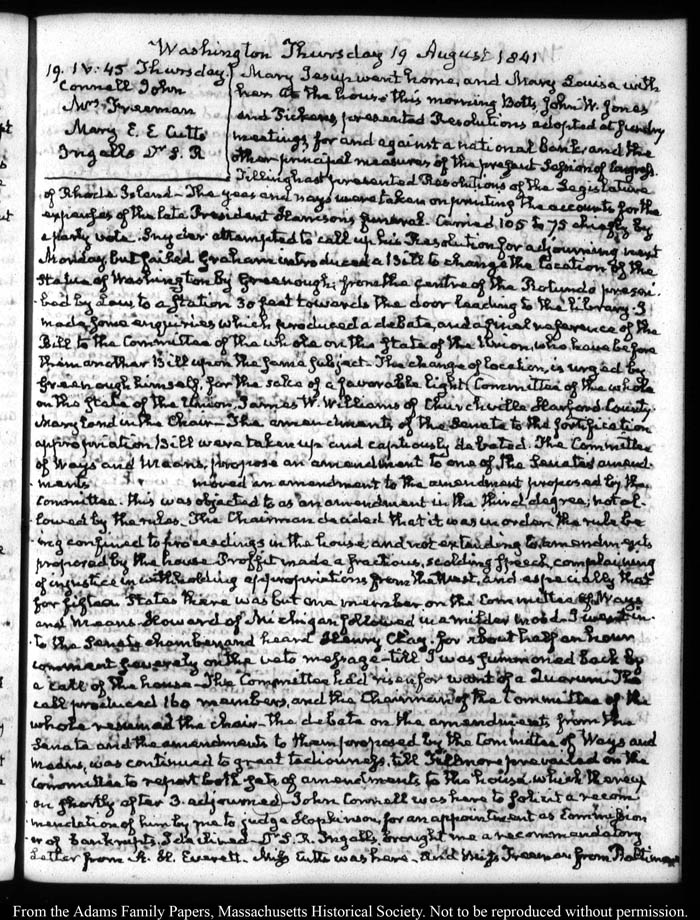 Washington Thursday 19 August 1841
19. IV:45 Thursday.
Connell John
Mrs. Freeman
Mary E. E Cutts
Ingalls Dr. S. R
Mary Jesup went home, and Mary Louisa with
her. At the house this morning Botts, John W. Jones
and Pickens, presented Resolutions adopted at sundry
meetings, for and against a national Bank, and the
other principal measures of the present Session of Congress.
Tillinghast presented Resolutions of the Legislature
of Rhode Island – The yeas and nays were taken on printing the accounts for the
expenses of the late President Harrison's funeral. Carried 105 to 75 chiefly by
a party vote. Snyder attempted to call up his Resolution for adjourning next
Monday but failed. Graham introduced a Bill to change the location of the
Statue of Washington by Greenough, from the centre of the Rotundo prescri-
bed by Law, to a station 30 feet towards the door leading to the library. I
made some enquiries which produced a debate, and a final reference of the
Bill to the Committee of the whole on the state of the Union, who have before
them another Bill upon the same subject – The change of location, is urged by
Greenough himself, for the sake of a favorable light. Committee of the whole
on the state of the Union, James W. Williams of Churchville Harford County,
Maryland in the Chair – The amendments of the Senate to the fortification
appropriation Bill were taken up and captiously debated. The Committee
of Ways and Means, propose an amendment to one of the Senates amend-
ments moved an amendment to the amendment proposed by the
Committee. this was objected to as an amendment in the third degree; not al-
lowed by the rules. The Chairman decided that it was in order, the rule be-
ing confined to proceedings in the house, and not extending to amendments
proposed by the house. Proffit made a fractious, scolding speech, complaining
of injustice in withholding appropriations from the West, and especially that
for fifteen States there was but one member on the Committee of Ways
and Means. Howard of Michigan followed in a milder mood. I went in-
to the Senate chamber and heard Henry Clay, for about half an hour
comment severely on the veto message – till I was summoned back by
a call of the house – The Committee had risen for want of a Quorum. The
call produced 160 members, and the Chairman of the Committee of the
whole resumed the chair – the debate on the amendments from the
Senate and the amendments to them proposed by the Committee of Ways and
Means, was continued to great tediousness, till Fillmore prevailed on the
Committee to report both sets of amendments to the house, which thereup-
on shortly after 3. adjourned – John Connell was here to solicit a recom-
mendation of him by me to judge Hopkinson, for an appointment as Commission-
er of Bankrupts. I declined – Dr. S. R. Ingalls, brought me a recommendatory
Letter from A. H. Everett. Miss Cutts was here – and Miss Freeman from Baltimore
From the Adams Family Papers, Massachusetts Historical Society. Not to be reproduced without permission.